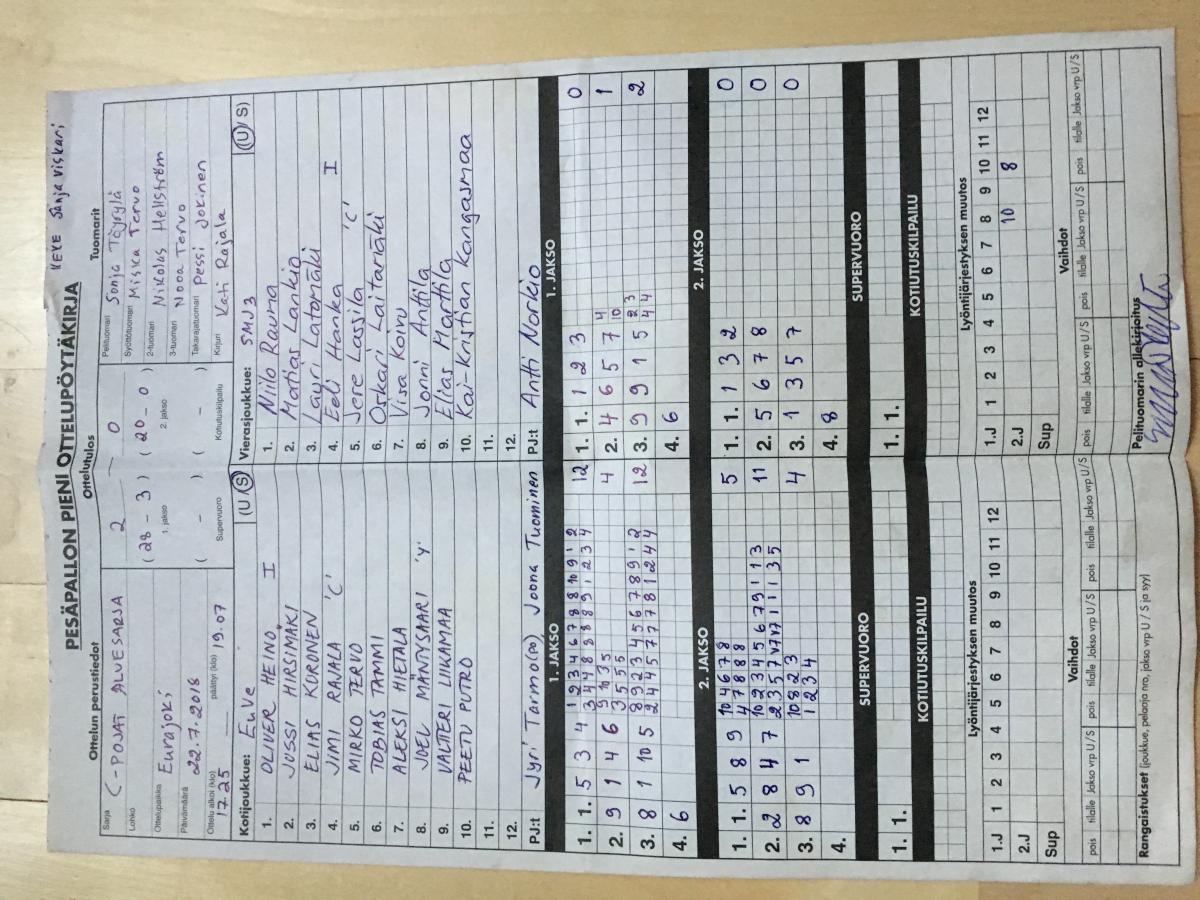 KEKE Sanja Viskari
PESÄPALLON PIENI OTTELUPÖYTÄKIRJA
Ottelun perustiedot
Ottelutulos
Tuomarit
Sarja C-POJAT ALUESARJA
Lohko
Ottelupaikka Eurajoki
Päivämäärä 22.7.2018
Ottelu alkoi (klo) 17.25 päättyi (klo) 19.07
2 – 0
(28 - 3) (20 - 0)
1. jakso 2. jakso
( - ) ( - )
Supervuoro Kotiutuskilpailu
Pelituomari Sonja Töyrylä
Syöttötuomari Miska Tervo
2-tuomari Nikolas Hellström
3-tuomari Nooa Tervo
Takarajatuomari Pessi Jokinen
Kirjuri Kati Rajala
Kotijoukkue: EuVe (U/S)
1. OLIVER HEINO I
2. JUSSI HIRSIMÄKI
3. ELIAS KURONEN
4. JIMI RAJALA 'C'
5. MIRKO TERVO
6. TOBIAS TAMMI
7. ALEKSI HIETALA
8. JOEL MÄNTYSAARI 'Y'
9. VALTTERI LIIKAMAA
10. PEETU PUTRO
11.
12.
PJ:t Jyri Tarmo(po), Joona Tuominen
Vierasjoukkue: SMJ3 (U/S)
1. Niilo Rauma
2. Matias Lankio
3. Lauri Latomäki
4. Eeli Hanka I
5. Jere Lassila 'C'
6. Oskari Laitamäki
7. Visa Koivu
8. Jonni Anttila
9. Elias Marttila
10. Kai-Kristian Kangasmaa
11.
12.
PJ:t Antti Norkio
1. JAKSO
1. JAKSO
1. 1. 5 3 4 12
2. 9 1 4 6 4
3. 8 1 10 5 12
4. 6
1. 1. 1 2 3 0
2. 4 6 5 7 1
3. 9 9 1 5 2
4. 6
2. JAKSO
2. JAKSO
1. 1. 5 8 9 5
2. 2 8 4 7 11
3. 8 9 1 4
4.
1. 1. 1 3 2 0
2. 5 6 7 8 0
3. 1 3 5 7 0
4. 8
SUPERVUORO
SUPERVUORO
1. 1.
1. 1.
KOTIUTUSKILPAILU
KOTIUTUSKILPAILU
Lyöntijärjestyksen muutos
1.J 1 2 3 4 5 6 7 8 9 10 11 12
2.J
Sup
Lyöntijärjestyksen muutos
1.J 1 2 3 4 5 6 7 8 9 10 11 12
2.J 10 8
Sup
Vaihdot
pois tilalle Jakso vrp U/S pois tilalle Jakso vrp U/S pois tilalle Jakso vrp U/S
Vaihdot
pois tilalle Jakso vrp U/S pois tilalle Jakso vrp U/S pois tilalle Jakso vrp U/S
Rangaistukset (joukkue, pelaaja nro, jakso vrp U / S ja syy)
Pelituomarin allekirjoitus